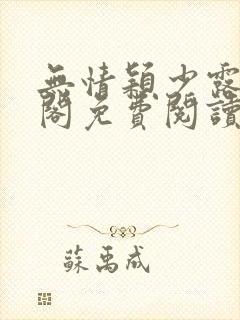 無情穎少露
閣免費閱讀
蘇禹成